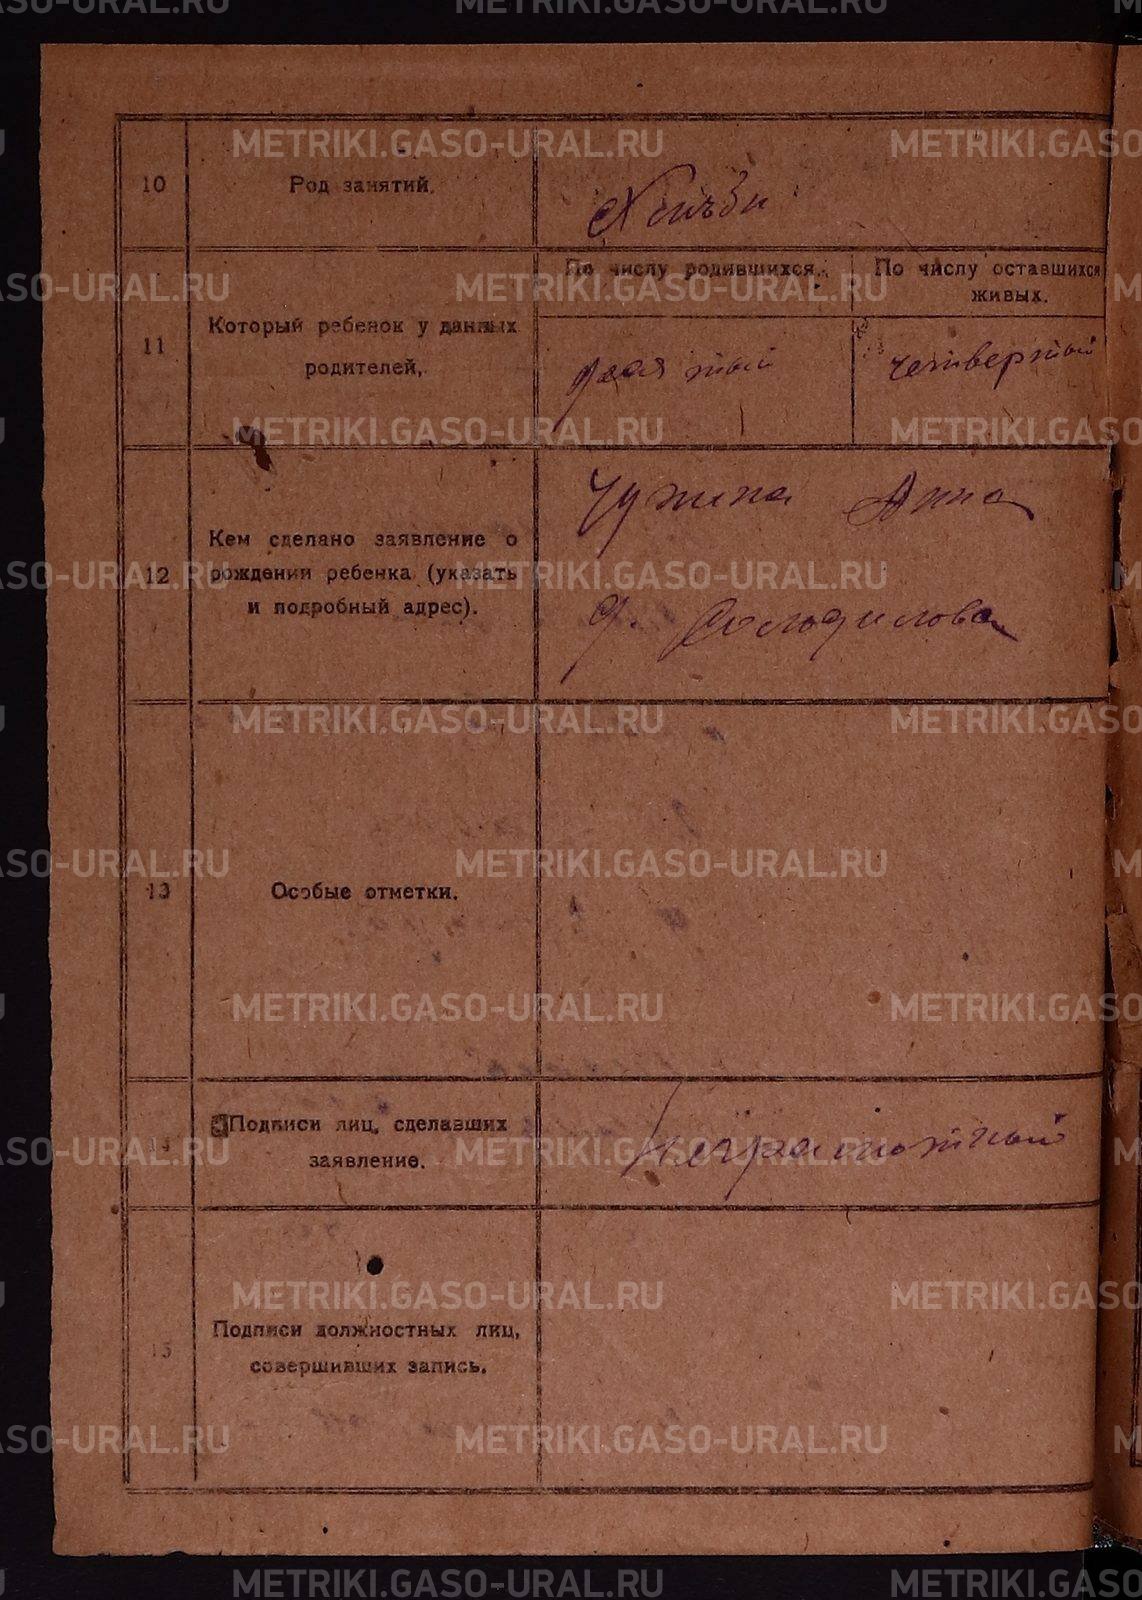 10
Род занятий.
По числу родившихся.
По число оставшихся живых.
11
Который ребенок у данных
родителей.
четвертый
Чужина Анна
12
Кем сделано заявление о
рождении ребенка (указать
и подробный адрес).
д.
13
Особые отметки.
14
Подписи лиц, сделавших
заявление.
неграмотный
15
Подписи должностных лиц,
совершивших запись.
METRIKI.GASO-URAL.RU